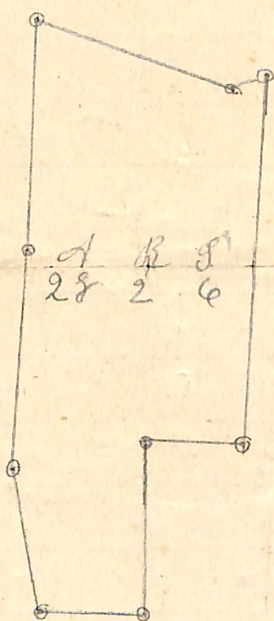 A R P
28 2 6